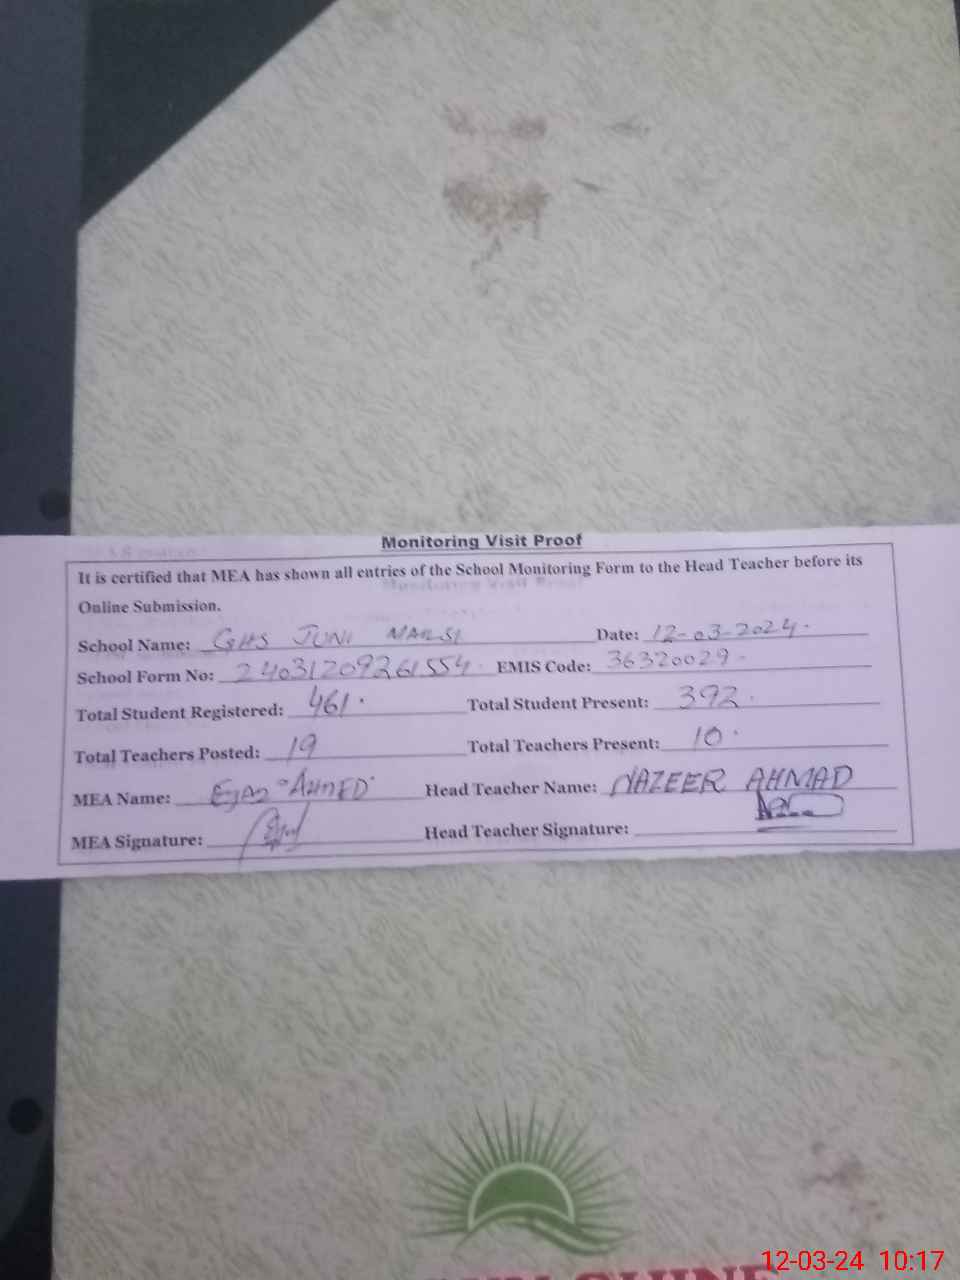 Monitoring Visit Proof
It is certified that MEA has shown all entries of the School Monitoring Form to the Head Teacher before its
Online Submission.
School Name: GHS JUNI MAILSI Date: 12-03-2024.
School Form No: 24031209261554. EMIS Code: 36320029.
Total Student Registered: 461. Total Student Present: 392.
Total Teachers Posted: 19 Total Teachers Present: 10.
MEA Name: Ejaz AHMED Head Teacher Name: NAZEER AHMAD
MEA Signature: Head Teacher Signature:
SHINE
12-03-24 10:17